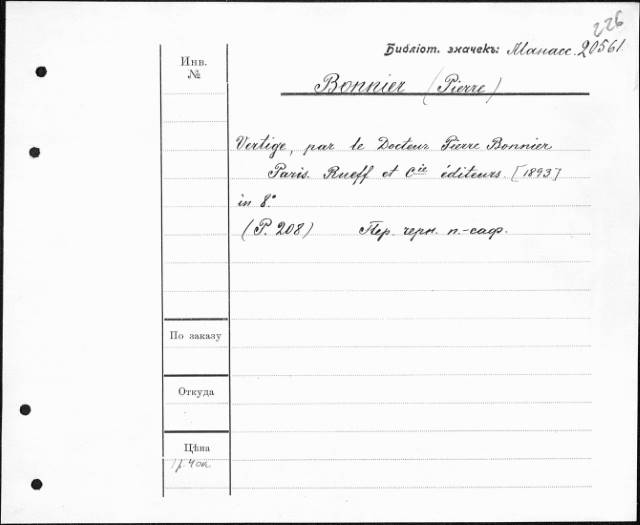 226
Библіот. значекъ: Манасс. 20561.
Инв.
№
Bonnier (Pierre)
Vertige, par le Docteur Pierre Bonnier
Paris. Rueff et Cie éditeurs. [1893]
in 8°
(P. 208) Пер. черн. п.-саф.
По заказу
Откуда
Цѣна
1 р. 40 к.